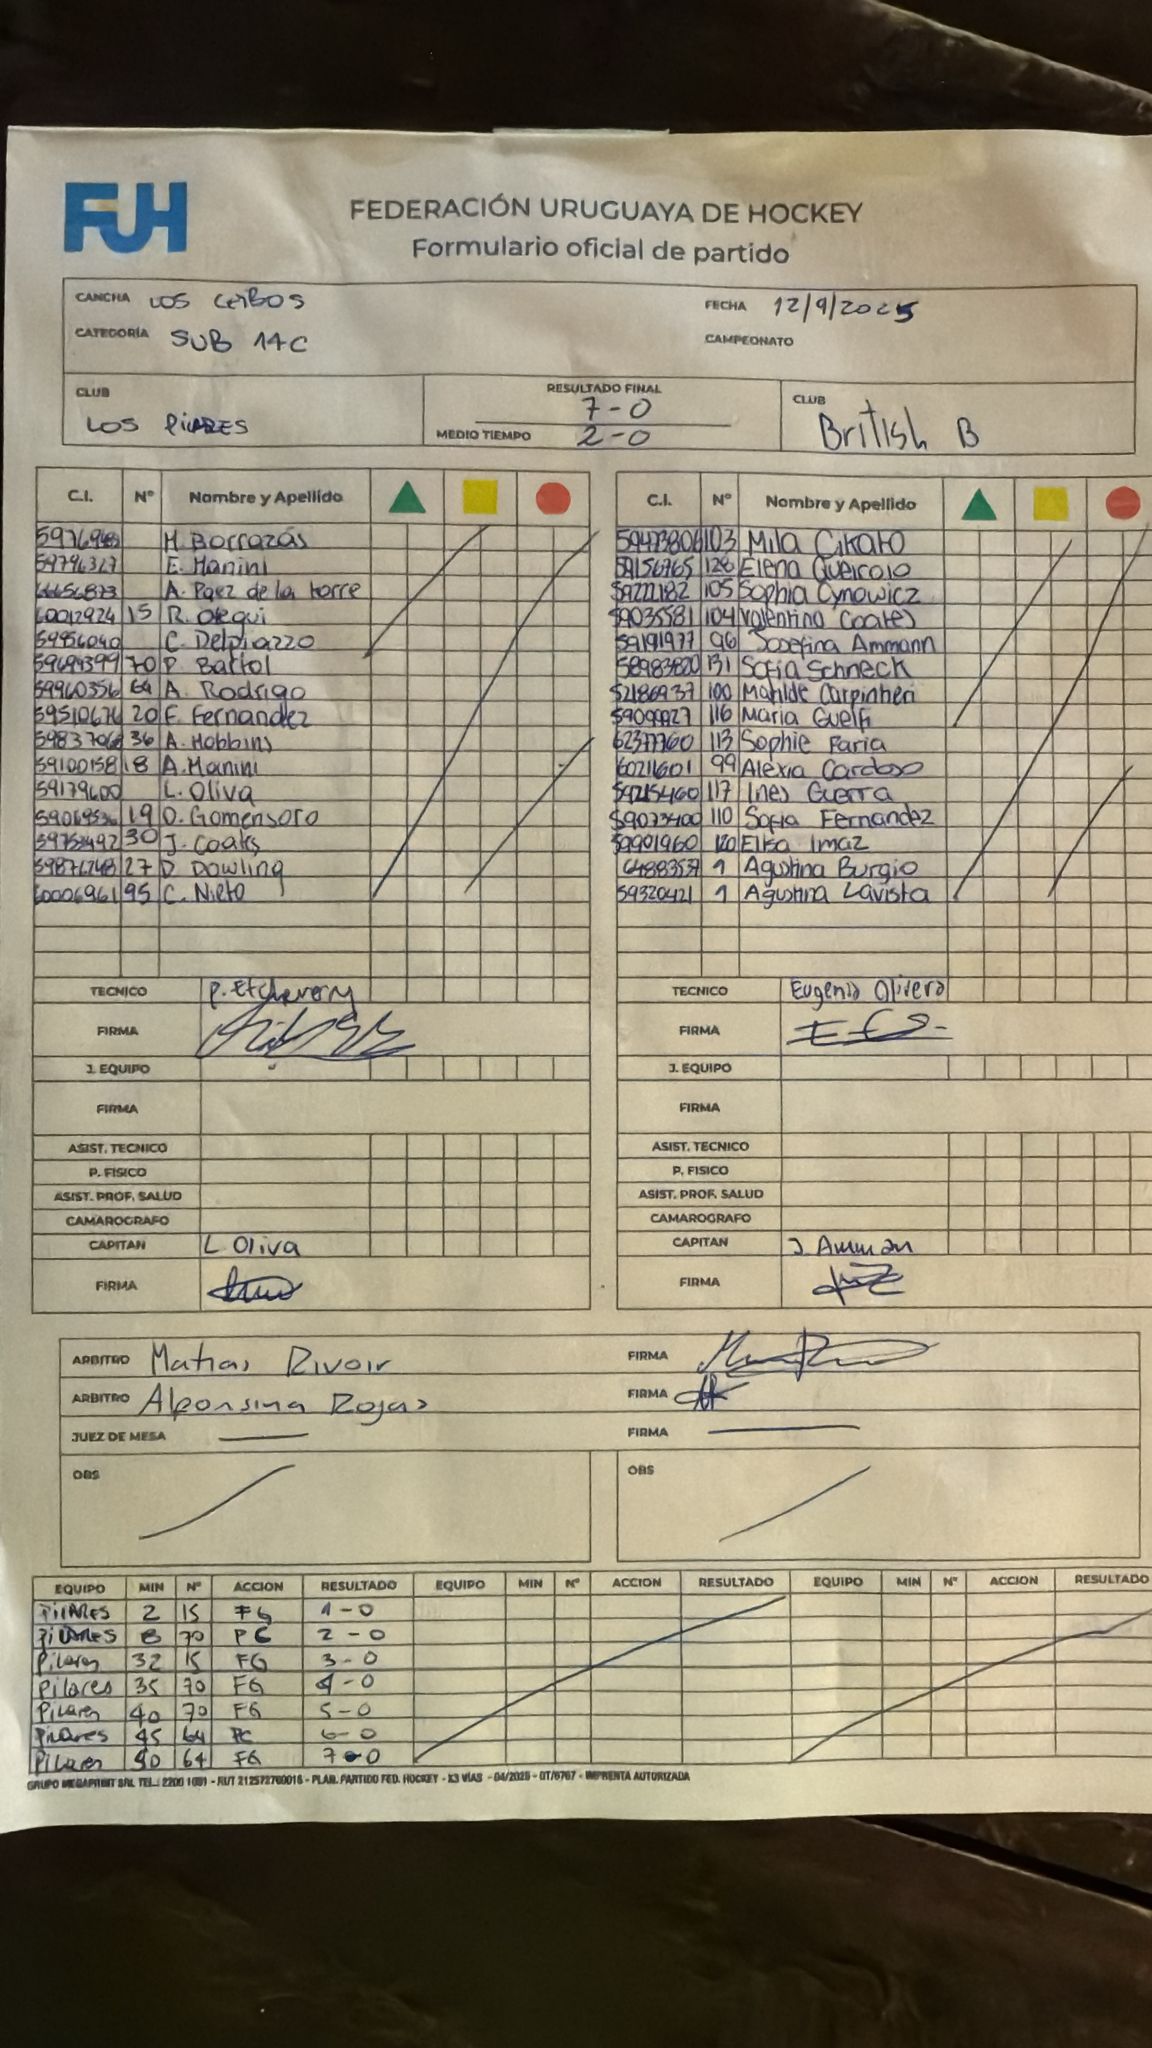 FUH
FEDERACIÓN URUGUAYA DE HOCKEY
Formulario oficial de partido
CANCHA LOS CEIBOS
FECHA 12/9/2025
CATEGORÍA SUB 14C
CAMPEONATO
CLUB LOS PILARES
RESULTADO FINAL 7-0
MEDIO TIEMPO 2-0
CLUB British B
C.I. Nº Nombre y Apellido
M. Borrazás
59796327 E. Manini
A. Paez de la torre
60012924 15 R. Olequi
59956040 C. Delpiazzo
59694399 70 P. Bartol
59960356 64 A. Rodrigo
59510674 20 F. Fernandez
36 A. Hobbins
59100158 18 A. Manini
59179600 L. Oliva
19 O. Gomensoro
59753492 30 J. Coates
59876248 27 D. Dowling
60006961 95 C. Nieto
TECNICO P. Etcheverry
FIRMA
J. EQUIPO
FIRMA
ASIST. TECNICO
P. FISICO
ASIST. PROF. SALUD
CAMAROGRAFO
CAPITAN L Oliva
FIRMA
C.I. Nº Nombre y Apellido
59473806 103 Mila Cikato
59156765 128 Elena Queirolo
59222182 105 Sophia Cynowicz
59035581 104 Valentina Coates
59191977 96 Josefina Ammann
58983820 131 Sofia Schneck
52186937 100 Matilde Carpinteri
116 Maria Guelfi
62377760 113 Sophie Faria
60211601 99 Alexia Cardoso
59215460 117 Ines Guerra
59073400 110 Sofia Fernandez
59901960 120 Elisa Imaz
64883537 1 Agustina Burgio
59320421 1 Agustina Lavista
TECNICO Eugenia Olivera
FIRMA
J. EQUIPO
FIRMA
ASIST. TECNICO
P. FISICO
ASIST. PROF. SALUD
CAMAROGRAFO
CAPITAN J. Amman
FIRMA
ARBITRO Matias Rivoir FIRMA
ARBITRO Alfonsina Rojas FIRMA
JUEZ DE MESA FIRMA
OBS OBS
EQUIPO MIN Nº ACCION RESULTADO EQUIPO MIN Nº ACCION RESULTADO EQUIPO MIN Nº ACCION RESULTADO
PILARES 2 15 FG 1-0
PILARES 8 70 PC 2-0
Pilares 32 15 FG 3-0
Pilares 35 70 FG 4-0
Pilares 40 70 FG 5-0
Pilares 45 64 PC 6-0
Pilares 50 64 FG 7-0
GRUPO MEGAPRINT SRL TEL.: 2200 1051 - RUT 212573760016 - PLAN. PARTIDO FED. HOCKEY - X3 VÍAS - 04/2025 - OT/6767 - IMPRENTA AUTORIZADA